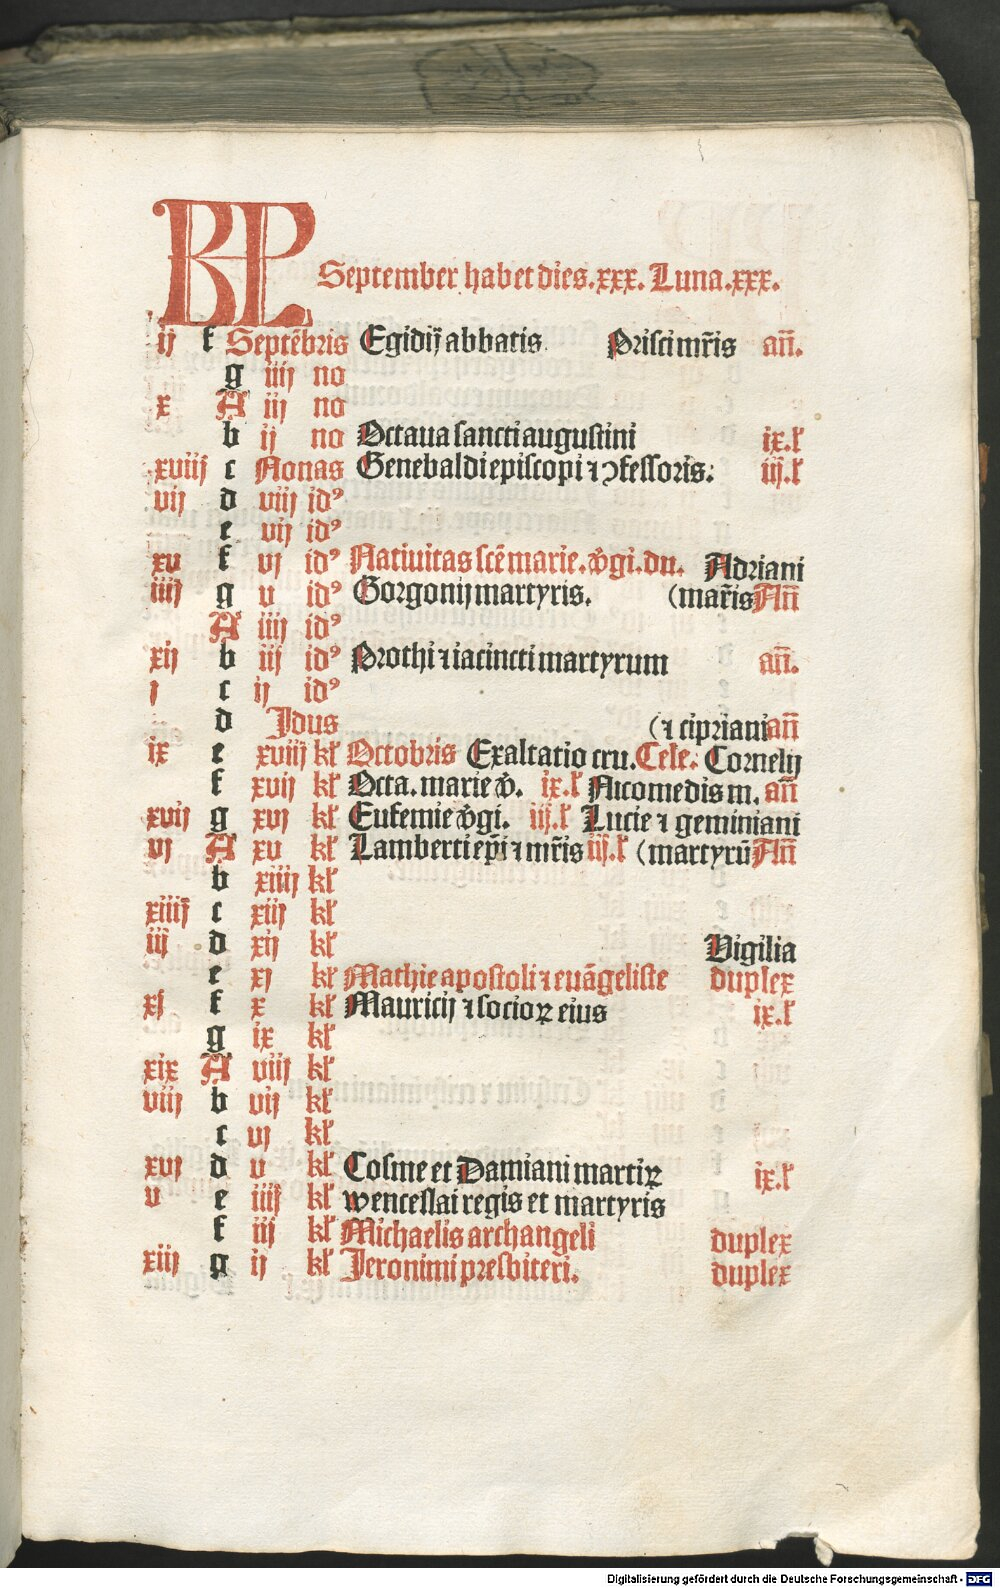 KL September habet dies.xxx. Luna.xxx.
ij f Septẽbris Egidij abbatis Prisci mr̃is an̄.
g iiij no
x A iij no
b ij no Octaua sancti augustini ix.l'
xviij c Nonas Genebaldi episcopi ⁊ ꝯfessoris: iij.l'
vij d viij idꝰ
e vij idꝰ
xv f vj idꝰ Natiuitas scẽ marie.v̓gi.du. Adriani
iiij g v idꝰ Gorgonij martyris. (mar̃is An̄
A iiij idꝰ
xij b iij idꝰ Prothi ⁊ iacincti martyrum an̄.
j c ij idꝰ
d Jdus (⁊ cipriani an̄
ix e xviij kl' Octobris Exaltatio cru. Cele: Cornelij
f xvij kl' Octa. marie v̓. ix.l' Nicomedis m. an̄
xvij g xvj kl' Eufemie v̓gi. iij.l' Lucie ⁊ geminiani
vj A xv kl' Lamberti ep̄i ⁊ mr̃is iij.l' (martyrū An̄
b xiiij kl'
xiiij c xiij kl'
iij d xij kl' Vigilia
e xj kl' Mathie apostoli ⁊ euāgeliste duplex
xj f x kl' Mauricij ⁊ socioꝝ eius ix.l'
g ix kl'
xix A viij kl'
viij b vij kl'
c vj kl'
xvj d v kl' Cosme et Damiani martiꝝ ix.l'
v e iiij kl' wenceslai regis et martyris
f iij kl' Michaelis archangeli duplex
xiij g ij kl' Jeronimi presbiteri. duplex
Digitalisierung gefördert durch die Deutsche Forschungsgemeinschaft - DFG